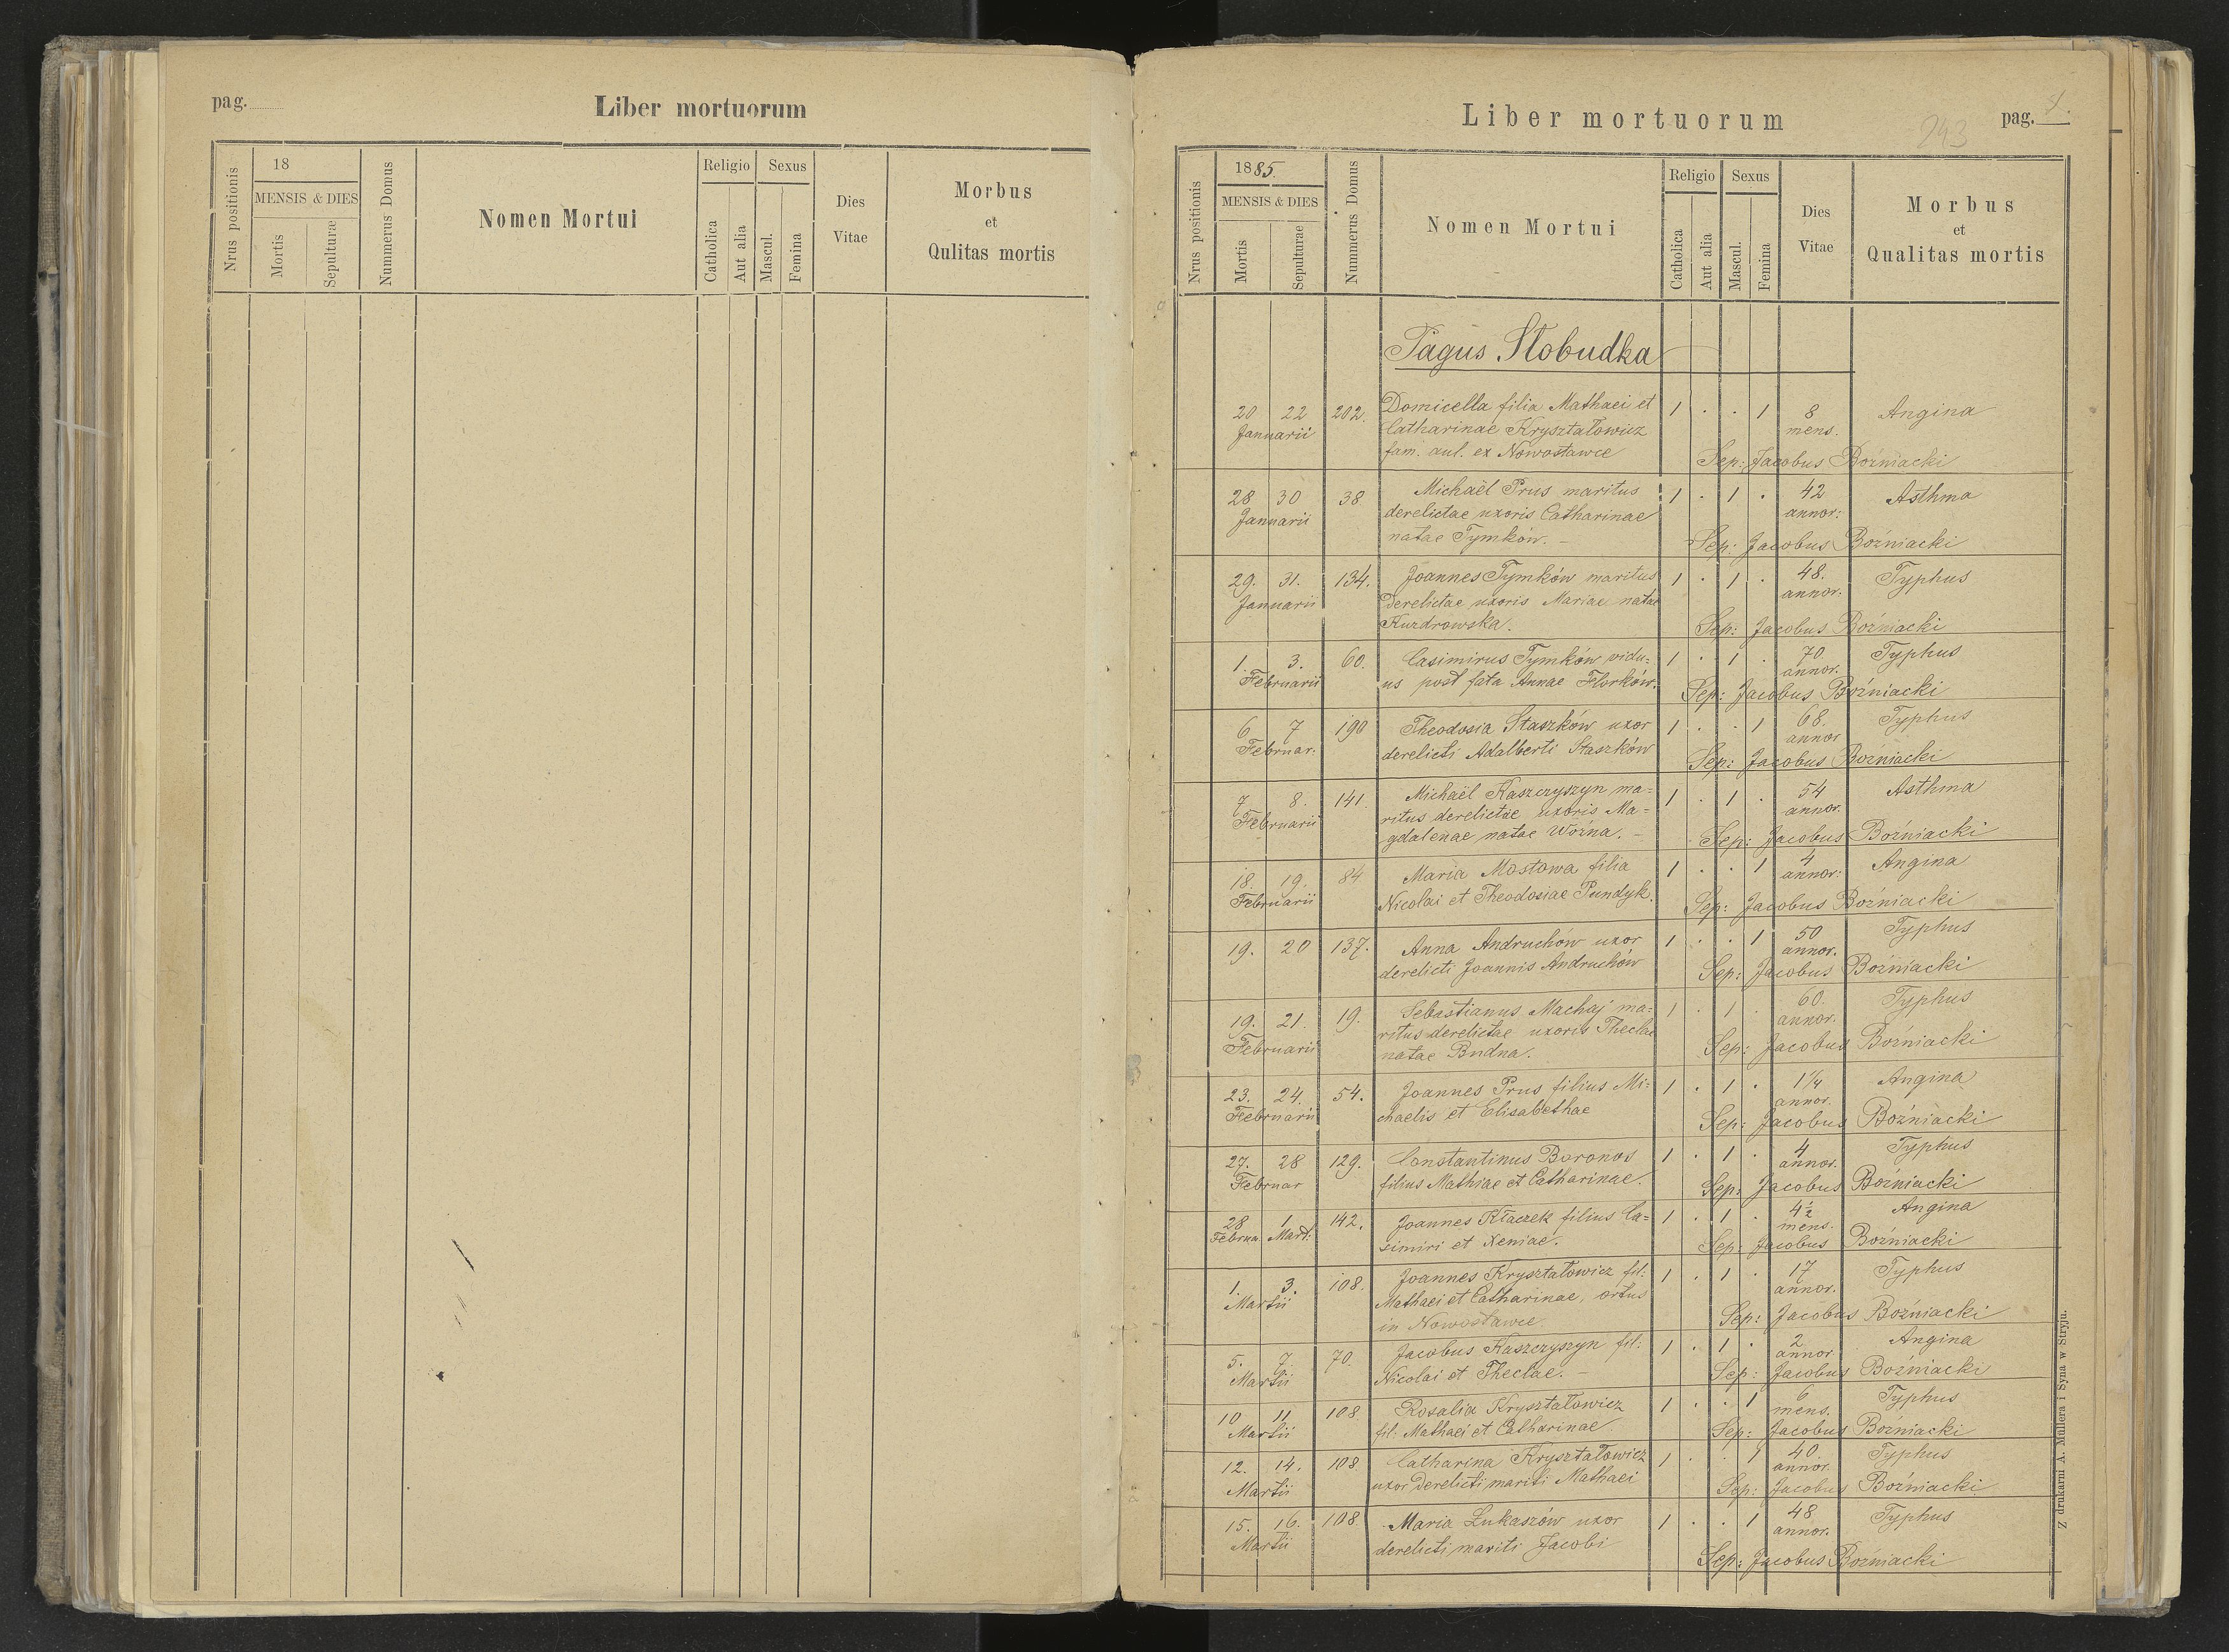 pag.
Liber mortuorum
Nrus positionis
18
MENSIS & DIES
Mortis
Sepulturæ
Nummerus Domus
Nomen Mortui
Religio
Catholica
Aut alia
Sexus
Mascul.
Femina
Dies
Vitae
Morbus
et
Qulitas mortis
Liber mortuorum
pag. 1.
243
Nrus positionis
1885.
MENSIS & DIES
Mortis
Sepulturae
Nummerus Domus
Nomen Mortui
Religio
Catholica
Aut alia
Sexus
Mascul.
Femina
Dies
Vitae
Morbus
et
Qualitas mortis
Pagus Słobudka
20 22 202. Domicella filia Mathaei et 1 . . 1 8 Angina
Januarii Catharinae Kryształowicz mens.
fam. aul. ex Nowostawce Sep: Jacobus Boźniacki
28 30 38 Michaël Prus maritus 1 . 1 . 42 Asthma
Januarii derelictae uxoris Catharinae annor:
natae Tymków. – Sep: Jacobus Boźniacki
29. 31. 134. Joannes Tymków maritus 1 . 1 . 48. Typhus
Januarii derelictae uxoris Mariae natae annor.
Kuzdrowska. Sep: Jacobus Boźniacki
1. 3. 60. Casimirus Tymków vidu= 1 . 1 . 70 Typhus
Februarii us post fata Annae Florków. annor.
Sep: Jacobus Boźniacki
6 7 190 Theodosia Staszków uxor 1 . . 1 68. Typhus
Februar. derelicti Adalberti Staszków annor
Sep: Jacobus Boźniacki
7 8. 141. Michaël Kaszczyszyn ma= 1 . 1 . 54 Asthma
Februarii ritus derelictae uxoris Ma= annor.
gdalenae natae Woźna. – Sep: Jacobus Boźniacki
18. 19. 84 Maria Mostowa filia 1 . . 1 4 Angina
Februarii Nicolai et Theodosiae Pundyk. annor.
Sep: Jacobus Boźniacki
19. 20 137. Anna Andruchów uxor 1 . . 1 50 Typhus
derelicti Joannis Andruchów annor.
Sep: Jacobus Boźniacki
19. 21. 19. Sebastianus Machaj ma= 1 . 1 . 60. Typhus
Februarii ritus derelictae uxoris Theclae annor.
natae Budna. Sep: Jacobus Boźniacki
23. 24. 54. Joannes Prus filius Mi= 1 . 1 . 1 1/4 Angina
Februarii chaelis et Elisabethae annor.
Sep: Jacobus Boźniacki
27. 28 129. Constantinus Boronos 1 . 1 . 4 Typhus
Februar filius Mathiae et Catharinae. annor.
Sep: Jacobus Boźniacki
28 1. 142. Joannes Kłaczek filius Ca= 1 . 1 . 4½ Angina
Februa. Mart: simiri et Xeniae. mens.
Sep: Jacobus Boźniacki
1. 3. 108. Joannes Kryształowicz fil: 1 . 1 . 17 Typhus
Martii Mathaei et Catharinae, ortus annor.
in Nowostawce. Sep: Jacobus Boźniacki
5. 7. 70. Jacobus Kaszczyszyn fil: 1 . 1 . 2 Angina
Martii Nicolai et Theclae. – annor
Sep: Jacobus Boźniacki
10 11 108 Rosalia Kryształowicz 1 . . 1 6 Typhus
Martii fil: Mathaei et Catharinae mens.
Sep: Jacobus Boźniacki
12. 14. 108 Catharina Kryształowicz 1 . . 1 40 Typhus
Martii uxor derelicti mariti Mathaei annor.
Sep: Jacobus Boźniacki
15. 16. 108 Maria Łukaszów uxor 1 . . 1 48 Typhus
Martii derelicti mariti Jacobi annor.
Sep: Jacobus Boźniacki
Z drukarni A. Müllera i Syna w Stryju.